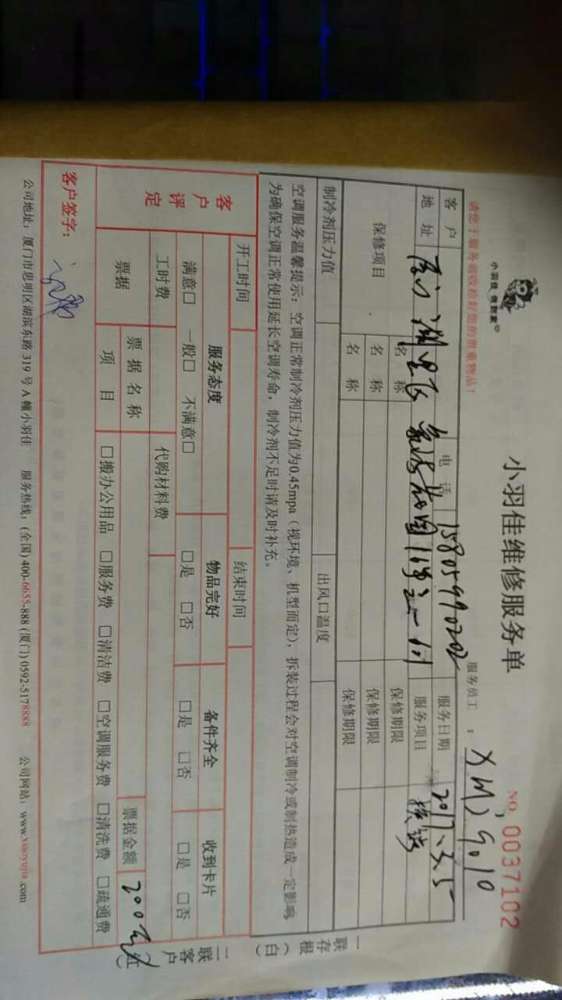 小羽佳维修服务单
NO. 0037102
小羽佳 做到家
请您于服务前收检好您的贵重物品！
服务员工：XMJ9010
客户 电话 服务日期 2017.3.5
地址 服务项目
保修项目 名称 保修期限
名称 保修期限
名称 保修期限
制冷剂压力值 出风口温度
空调服务温馨提示：空调正常制冷剂压力值为0.45mpa（视环境、机型而定），拆装过程会对空调制冷或制热造成一定影响，
为确保空调正常使用延长空调寿命，制冷剂不足时请及时补充。
开工时间 结束时间
客户评定 服务态度 物品完好 备件齐全 收到卡片
满意□ 一般□ 不满意□ □是 □否 □是 □否 □是 □否
工时费 代购材料费
票据 票据名称 票据金额 200元
项目 □搬办公用品 □服务费 □清洁费 □空调服务费 □清洗费 □疏通费
客户签字：
公司地址：厦门市思明区湖滨东路319号A幢小羽佳 服务热线：(全国)400-6655-888 (厦门)0592-5178888 公司网站：www.xiaoyujia.com
一联存根（白）
二联客户